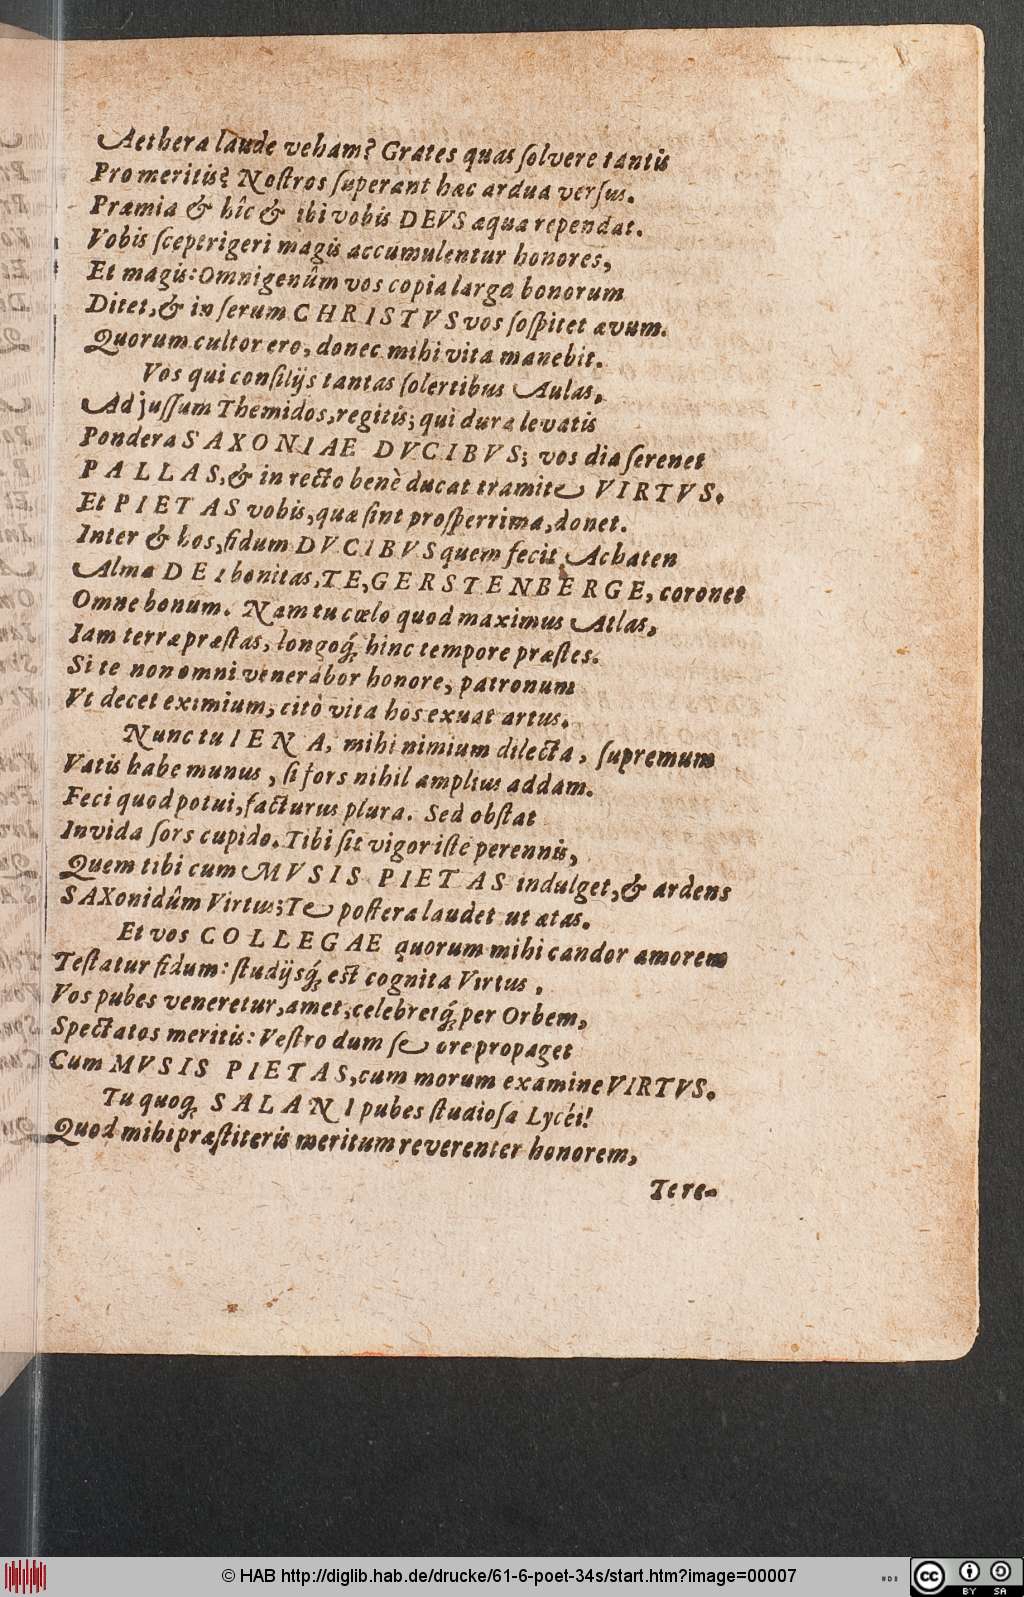 Aethera laude veham? Grates quas solvere tantis
Pro meritis? Nostros superant hæc ardua versus.
Præmia & hîc & ibi vobis DEVS æqua rependat.
Vobis sceptrigeri magis accumulentur honores,
Et magis: Omnigenûm vos copia larga bonorum
Ditet, & in serum CHRISTVS vos sospitet ævum.
Quorum cultor ero, donec mihi vita manebit.
Vos qui consilijs tantas solertibus Aulas,
Ad jussum Themidos, regitis; qui dura levatis
Pondera SAXONIAE DVCIBVS; vos dia serenet
PALLAS, & in recto benè ducat tramite VIRTVS.
Et PIETAS vobis, quæ sint prosperrima, donet.
Inter & hos, fidum DVCIBVS quem fecit Achaten
Alma DEI bonitas, TE, GERSTENBERGE, coronet
Omne bonum. Nam tu cœlo quod maximus Atlas,
Iam terræ præstas, longoq́; hinc tempore præstes.
Si te non omni venerabor honore, patronum
Vt decet eximium, citò vita hos exuat artus.
Nunc tu IENA, mihi nimium dilecta, supremum
Vatis habe munus, si fors nihil amplius addam.
Feci quod potui, facturus plura. Sed obstat
Invida sors cupido. Tibi sit vigor iste perennis,
Quem tibi cum MVSIS PIETAS indulget, & ardens
SAXonidûm Virtus; Te postera laudet ut ætas.
Et vos COLLEGAE quorum mihi candor amorem
Testatur fidum: studijsq́; est cognita Virtus,
Vos pubes veneretur, amet, celebretq́; per Orbem,
Spectatos meritis: Vestro dum se ore propaget
Cum MVSIS PIETAS, cum morum examine VIRTVS.
Tu quoq; SALANI pubes studiosa Lycéi!
Quod mihi præstiteris meritum reverenter honorem,
Tere-
© HAB http://diglib.hab.de/drucke/61-6-poet-34s/start.htm?image=00007
cc BY SA